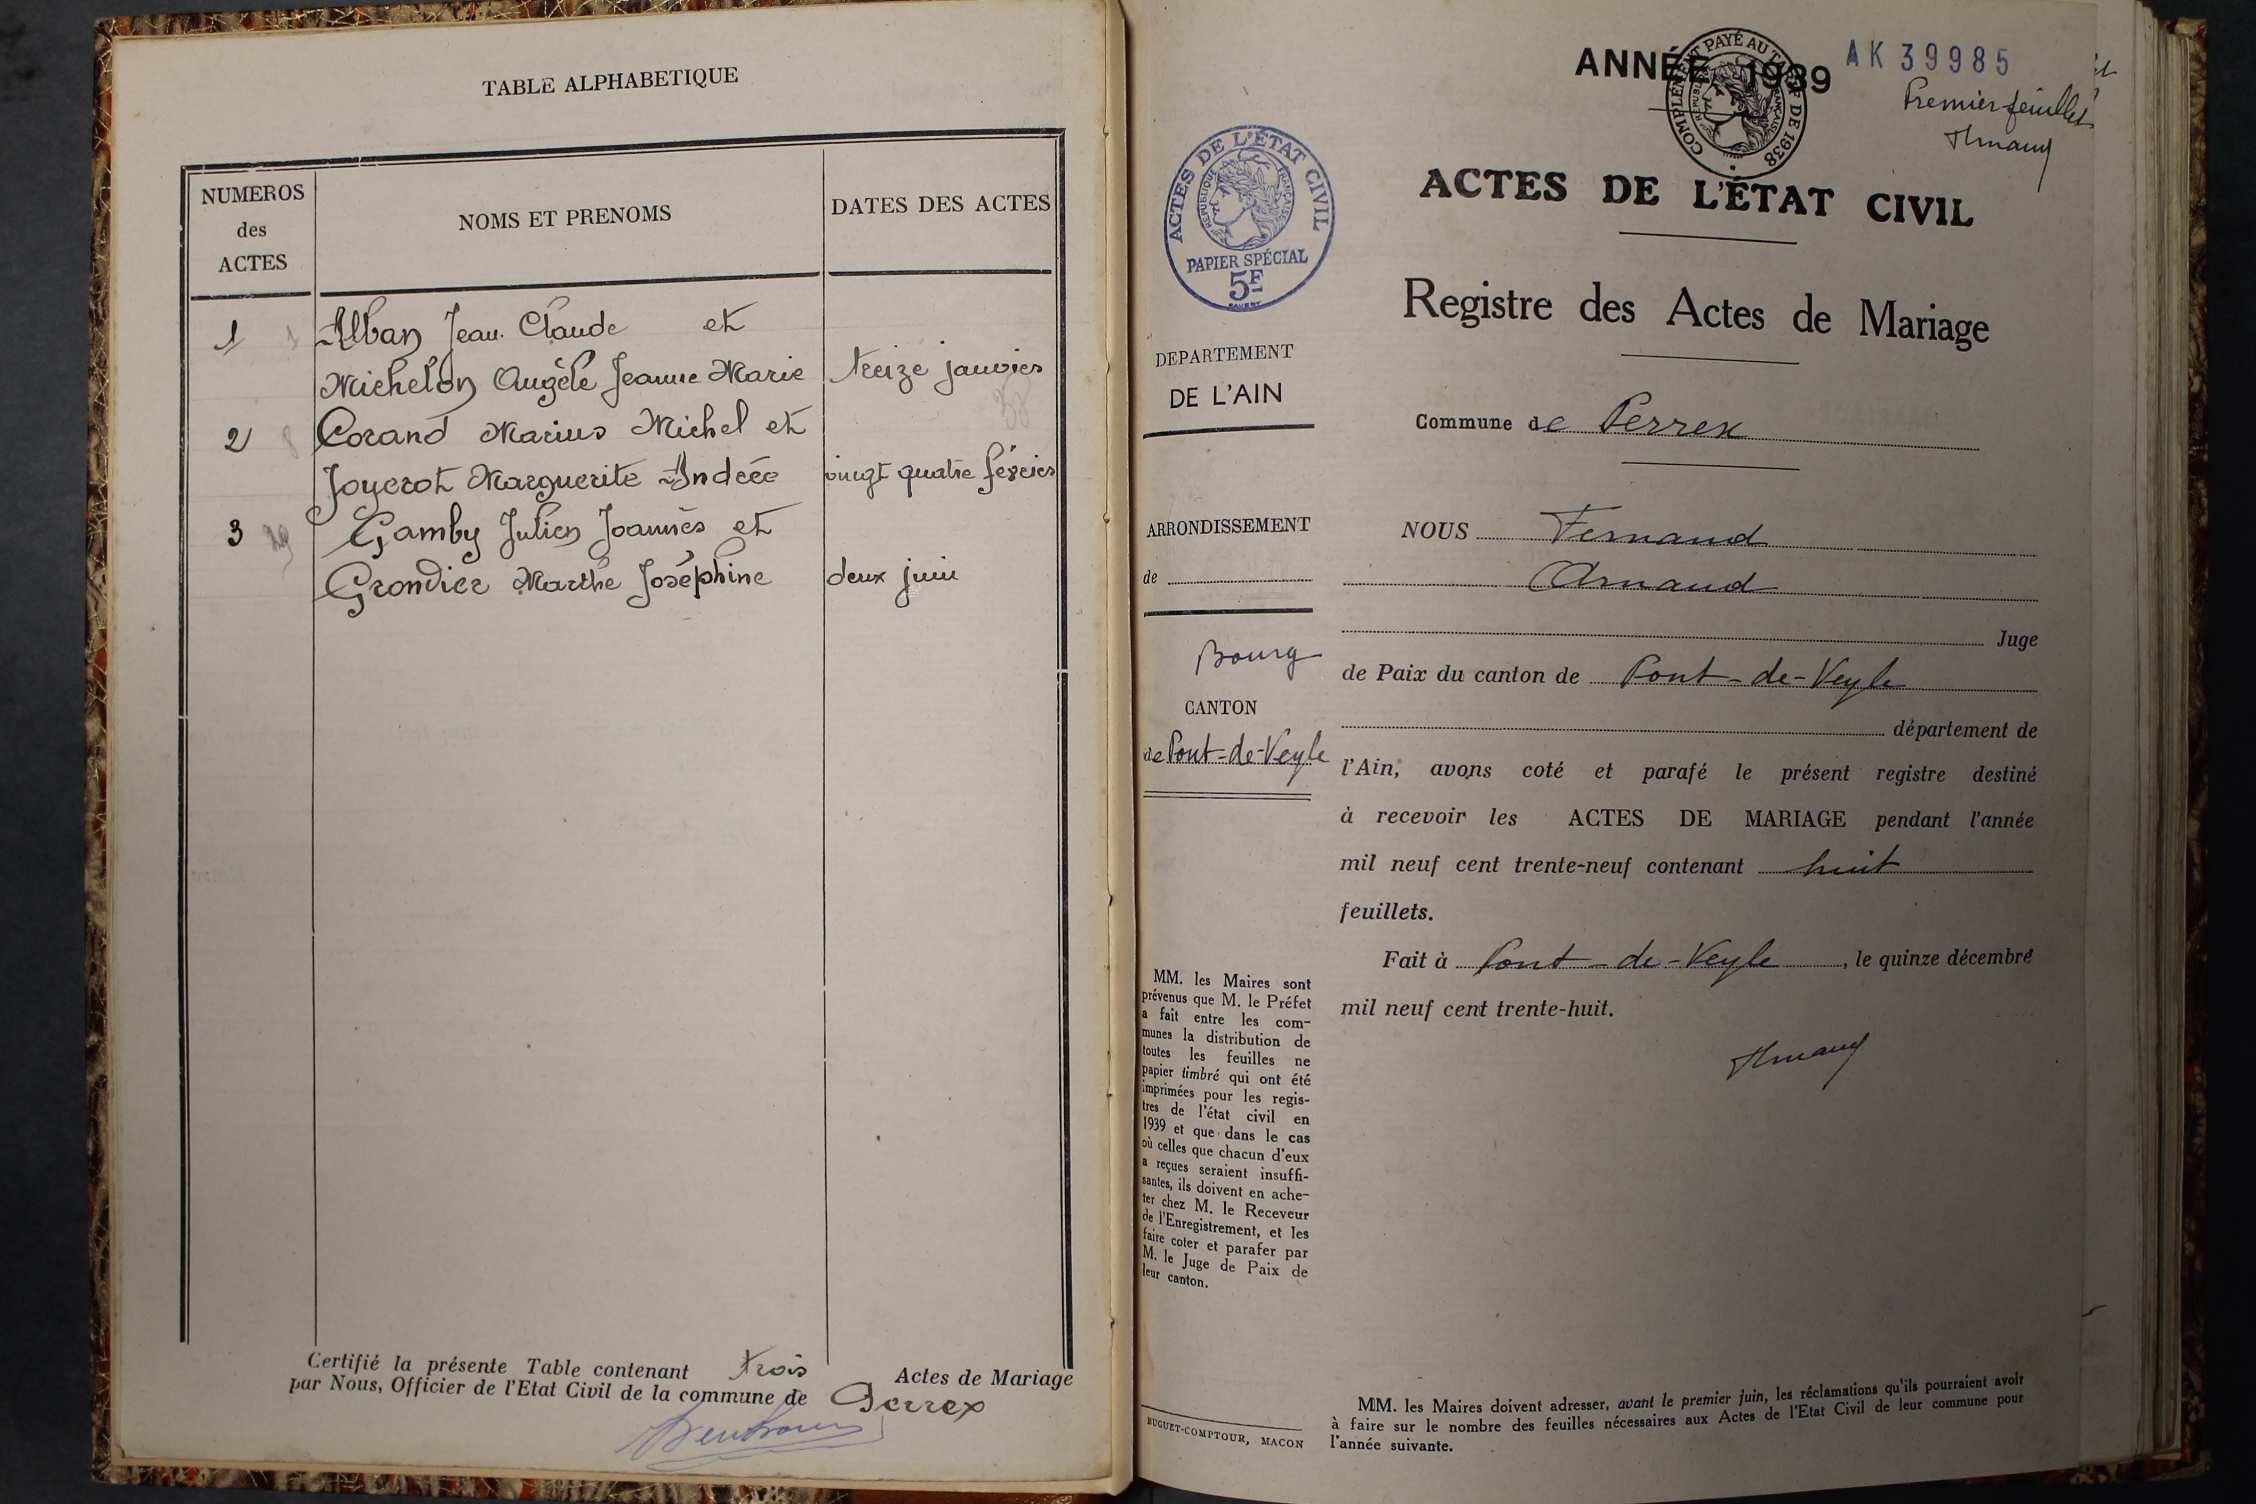 TABLE ALPHABETIQUE
NUMEROS
des
ACTES
NOMS ET PRENOMS
DATES DES ACTES
1 Alban Jean Claude et
Michelon Angèle Jeanne Marie treize janvier
2 Corand Marius Michel et
Joyerot Marguerite Andrée vingt quatre février
3 Gamby Julien Joannès et
Grondier Marthe Joséphine deux juin
Certifié la présente Table contenant trois Actes de Mariage
par Nous, Officier de l'Etat Civil de la commune de Perrex
ANNÉE 1939
COMPLÉMENT PAYÉ AU TARIF DE 1938
RÉPUBLIQUE FRANÇAISE
AK 39985
Premier feuillet
Arnaud
ACTES DE L'ÉTAT CIVIL
RÉPUBLIQUE FRANÇAISE
PAPIER SPÉCIAL
5F
ACTES DE L'ÉTAT CIVIL
Registre des Actes de Mariage
DEPARTEMENT
DE L'AIN
Commune de Perrex
ARRONDISSEMENT
de
Bourg
CANTON
de Pont-de-Veyle
NOUS Fernand
Arnaud
Juge
de Paix du canton de Pont-de-Veyle
département de
l'Ain, avons coté et parafé le présent registre destiné
à recevoir les ACTES DE MARIAGE pendant l'année
mil neuf cent trente-neuf contenant huit
feuillets.
Fait à Pont-de-Veyle, le quinze décembre
mil neuf cent trente-huit.
Arnaud
MM. les Maires sont
prévenus que M. le Préfet
a fait entre les com-
munes la distribution de
toutes les feuilles ne
papier timbré qui ont été
imprimées pour les regis-
tres de l'état civil en
1939 et que dans le cas
où celles que chacun d'eux
a reçues seraient insuffi-
santes, ils doivent en ache-
ter chez M. le Receveur
de l'Enregistrement, et les
faire coter et parafer par
M. le Juge de Paix de
leur canton.
BUGUET-COMPTOUR, MACON
MM. les Maires doivent adresser, avant le premier juin, les réclamations qu'ils pourraient avoir
à faire sur le nombre des feuilles nécessaires aux Actes de l'Etat Civil de leur commune pour
l'année suivante.